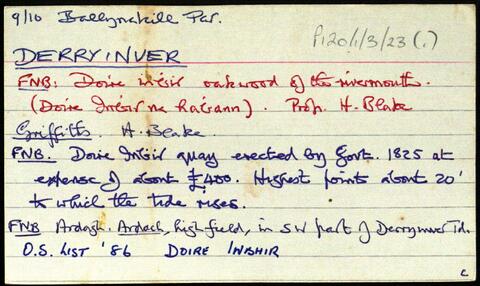 9/10 Ballynakill Par.
P120/1/3/23 (.)
DERRYINVER
FNB: Doire inbír oakwood of the rivermouth.
(Doire Inbír na Raírann). Prop. H. Blake
Griffiths. H. Blake.
FNB. Doire Inbír quay erected by Govt. 1825 at
expense of about £400. Highest points about 20'
to which the tide rises.
FNB Ardagh. Ardach, high field, in SW part of Derryinver Td.
O.S. LIST '86 DOIRE INBHIR
c